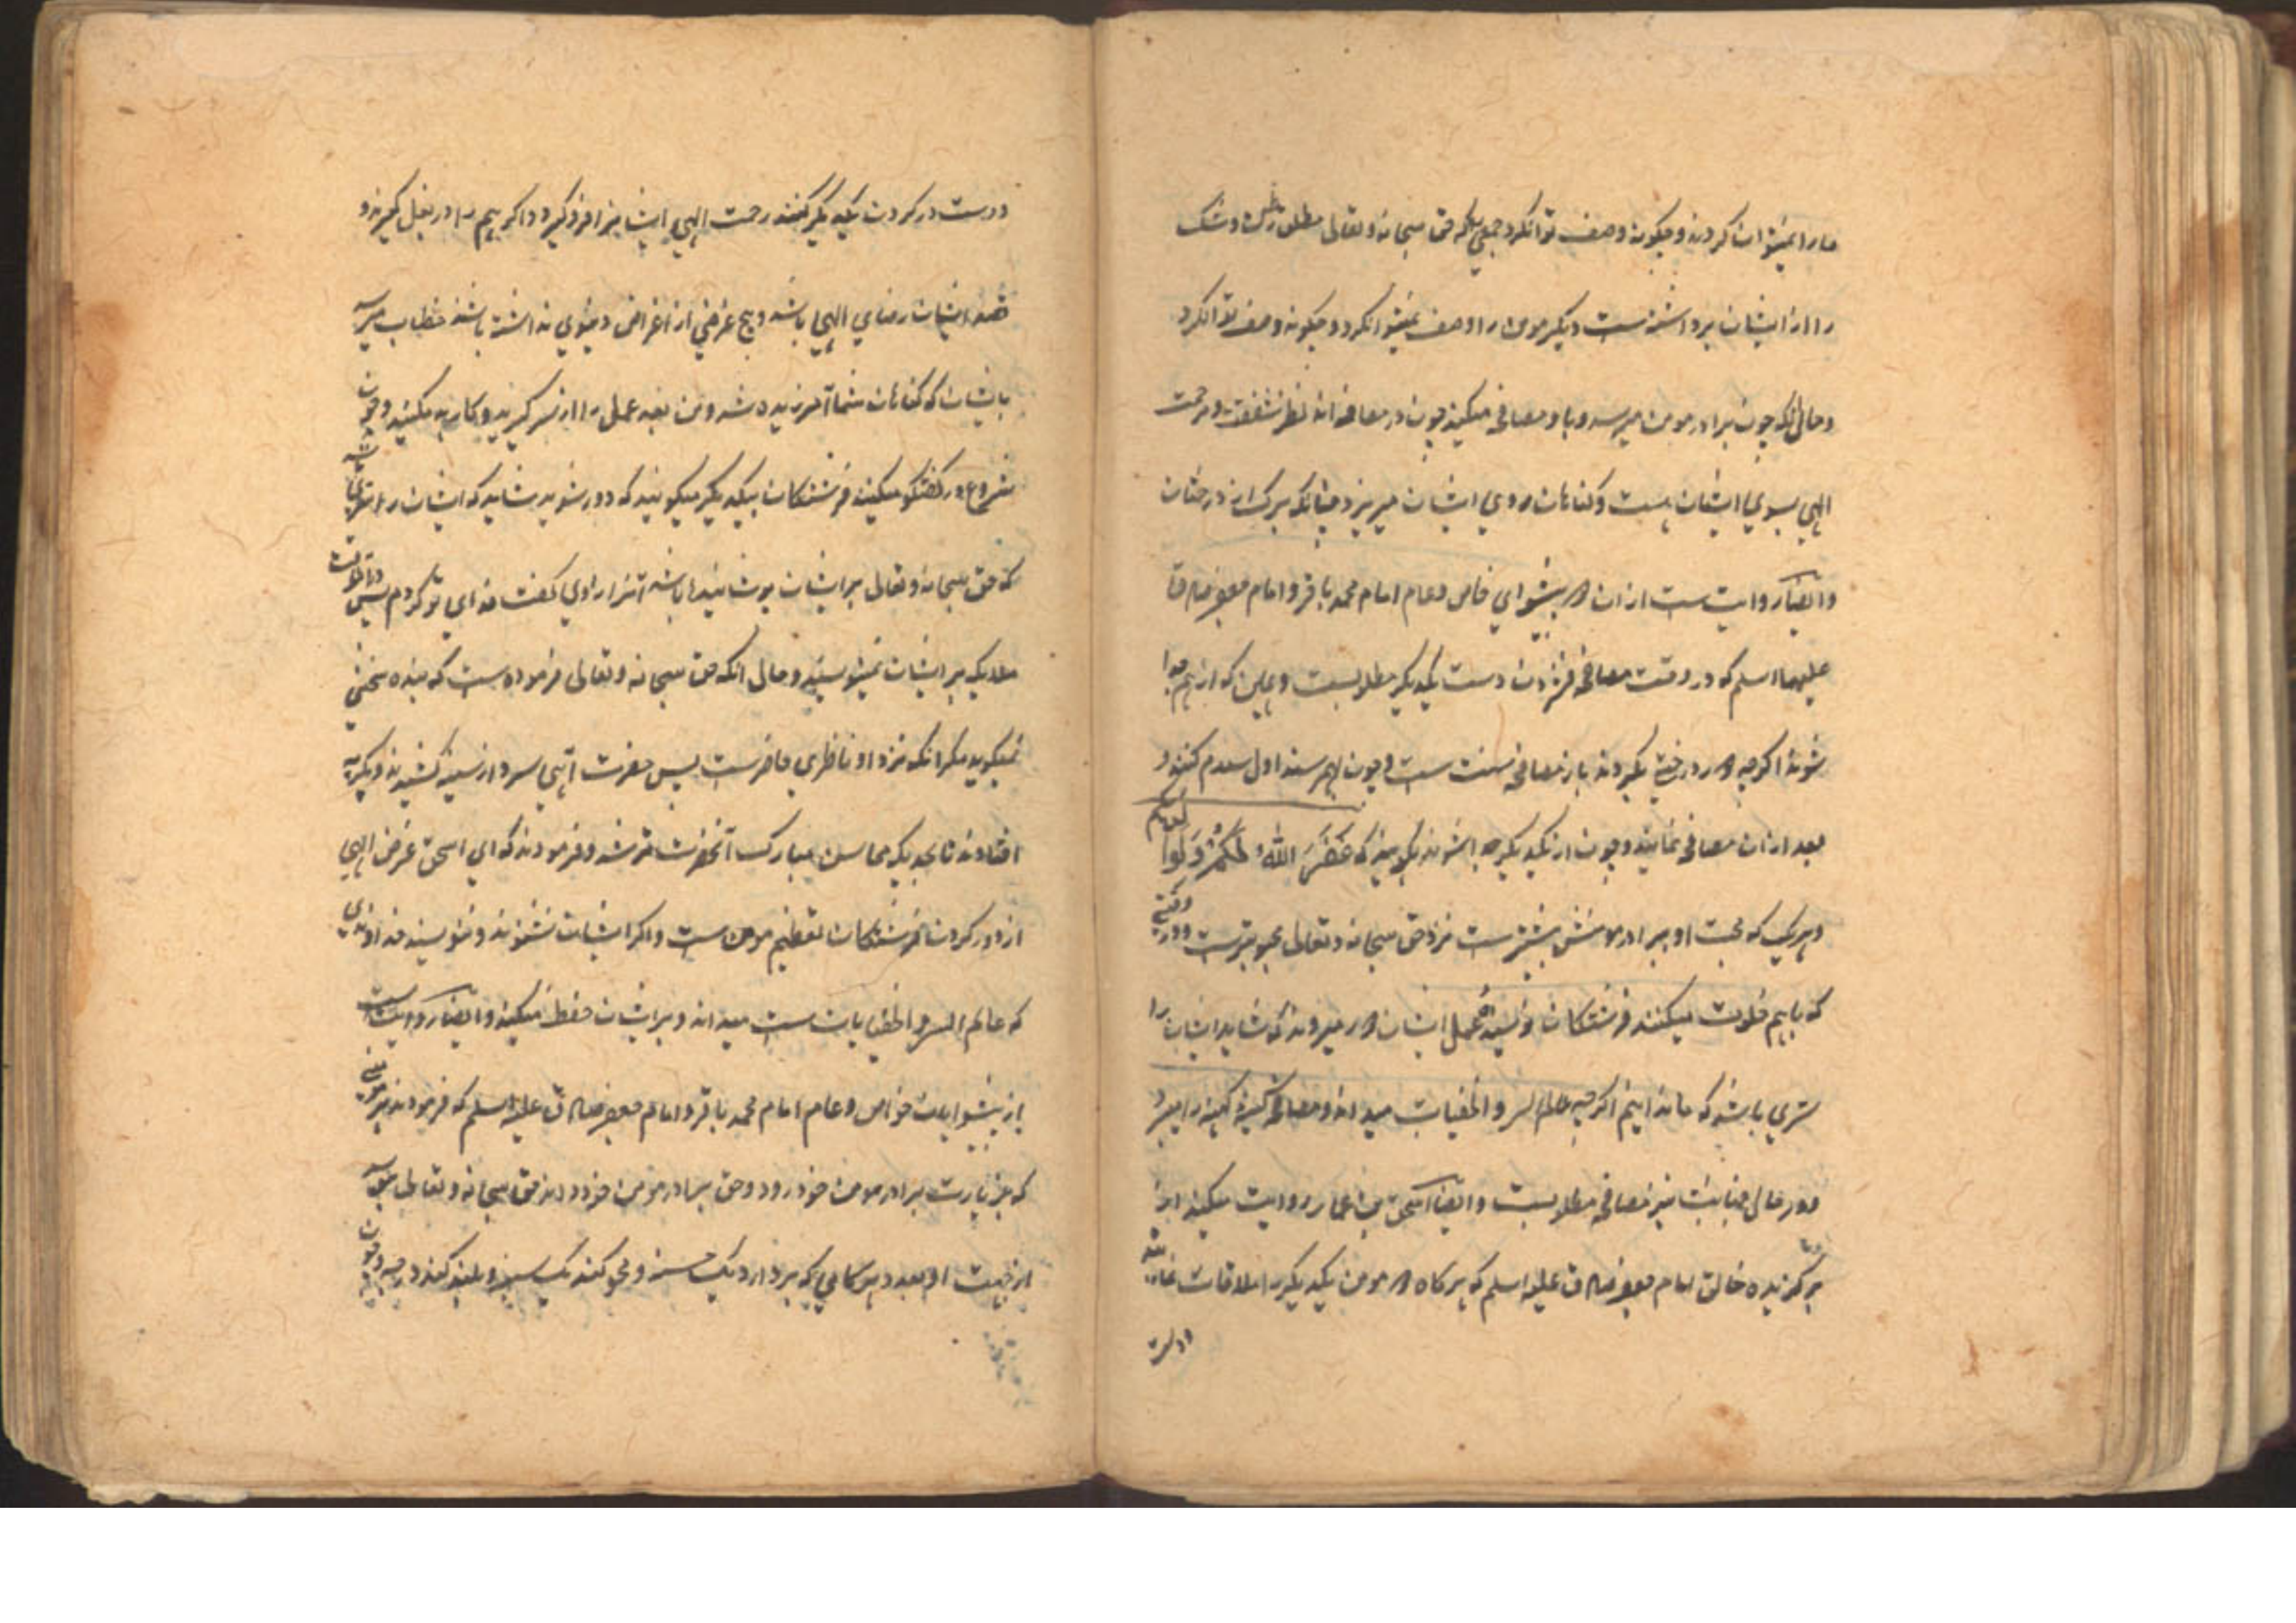 ما را نمیتوان کردند و چگونه وصف توانکرد جمعی را که حق سبحانه و تعالی مطلق رجس و شک
را از ایشان برداشته است دیگر مومن را وصف نمیتوانکرد و چگونه وصف توانکرد
و حال آنکه چون برادر مومن میرسد و با او مصافحه میکند چون در مصافحه اند نظر شفقت و مرحمت
الهی بسوی ایشان هست و کناهان از روی ایشان میریزد چنانکه برک از درختان
و ایضا روایت ست از ان دو پیشوای خاص و عام امام محمد باقر و امام جعفر صادق
علیهما السلم که در وقت مصافحه فشردن دست یکدیگر مطلوبست و همین که از هم جدا
شوند اکرچه دور درختی بگردند باز مصافحه سنت ست و چون بهم رسند اول سلام کنند و
بعد از ان مصافحه نمایند و چون از یکدیگر جدا شوند بگویند که غَفَرَ اللهُ لَكُمْ وَلَنا
و هر یک که محبت او ببرادر مومنش بیشترست نزد حق سبحانه و تعالی محبوبترست و در وقتی
که با هم خلوت میکنند فرشتکان نویسنده عمل ایشان دور میروند که شاید ایشان را
سری باشد که ما ندانیم اکرچه عالم السر و الخفیات میداند و مصافحه کینه کهنه را میبرد
و در حال جنابت نیز مصافحه مطلوبست و ایضا اسحق بن عمار روایت میکند از
برگزیده خالق امام جعفر صادق علیه السلم که هر کاه دو مومن یکدیگر را ملاقات نمایند
و دست
و دست در کردن یکدیگر کنند رحمت الهی ایشانرا فرو گیرد و اکر هم را در بغل گیرند و
قصد ایشان رضای الهی باشد و هیچ غرضی از اغراض دنیوی نداشته باشند خطاب میرسد
بایشان که کناهان شما آمرزیده شد و من بعد عمل را از سر گیرید و کار بد مکنید و چون
شروع در گفتگو میکنند فرشتکان بیکدیگر میگویند که دور شوید شاید که ایشان را سری باشد
که حق سبحانه و تعالی بر ایشان پوشانیده باشد آنرا راوی گفت فدای تو گردم پس در این وقت
ملایکه بر ایشان نمینویسند و حال آنکه حق سبحانه و تعالی فرموده ست که بنده سخنی
نمیگوید مکر آنکه نزد او ناظری حاضرست پس حضرت آهی سرد از سینه کشیدند و بگریه
افتادند تا بحدیکه محاسن مبارک آنحضرت تر شد و فرمودند که ای اسحق غرض الهی
از دور کردن فرشتکان تعظیم مومن ست و اکر ایشان نشنوند و ننویسند خداوندی
که عالم السر و الخفیات ست میداند و بر ایشان حفظ میکند و ایضا روایت ست
از پیشوایان خواص و عام امام محمد باقر و امام جعفر صادق علیه السلم که فرمودند هر مومنی
که بزیارت برادر مومن خود رود و حق برادر مومن خود داند حق سبحانه و تعالی بنویسد
از جهت او بعدد هر کامی که بردارد یک حسنه و محو کند یک سیئه و بلند کند درجه و چون